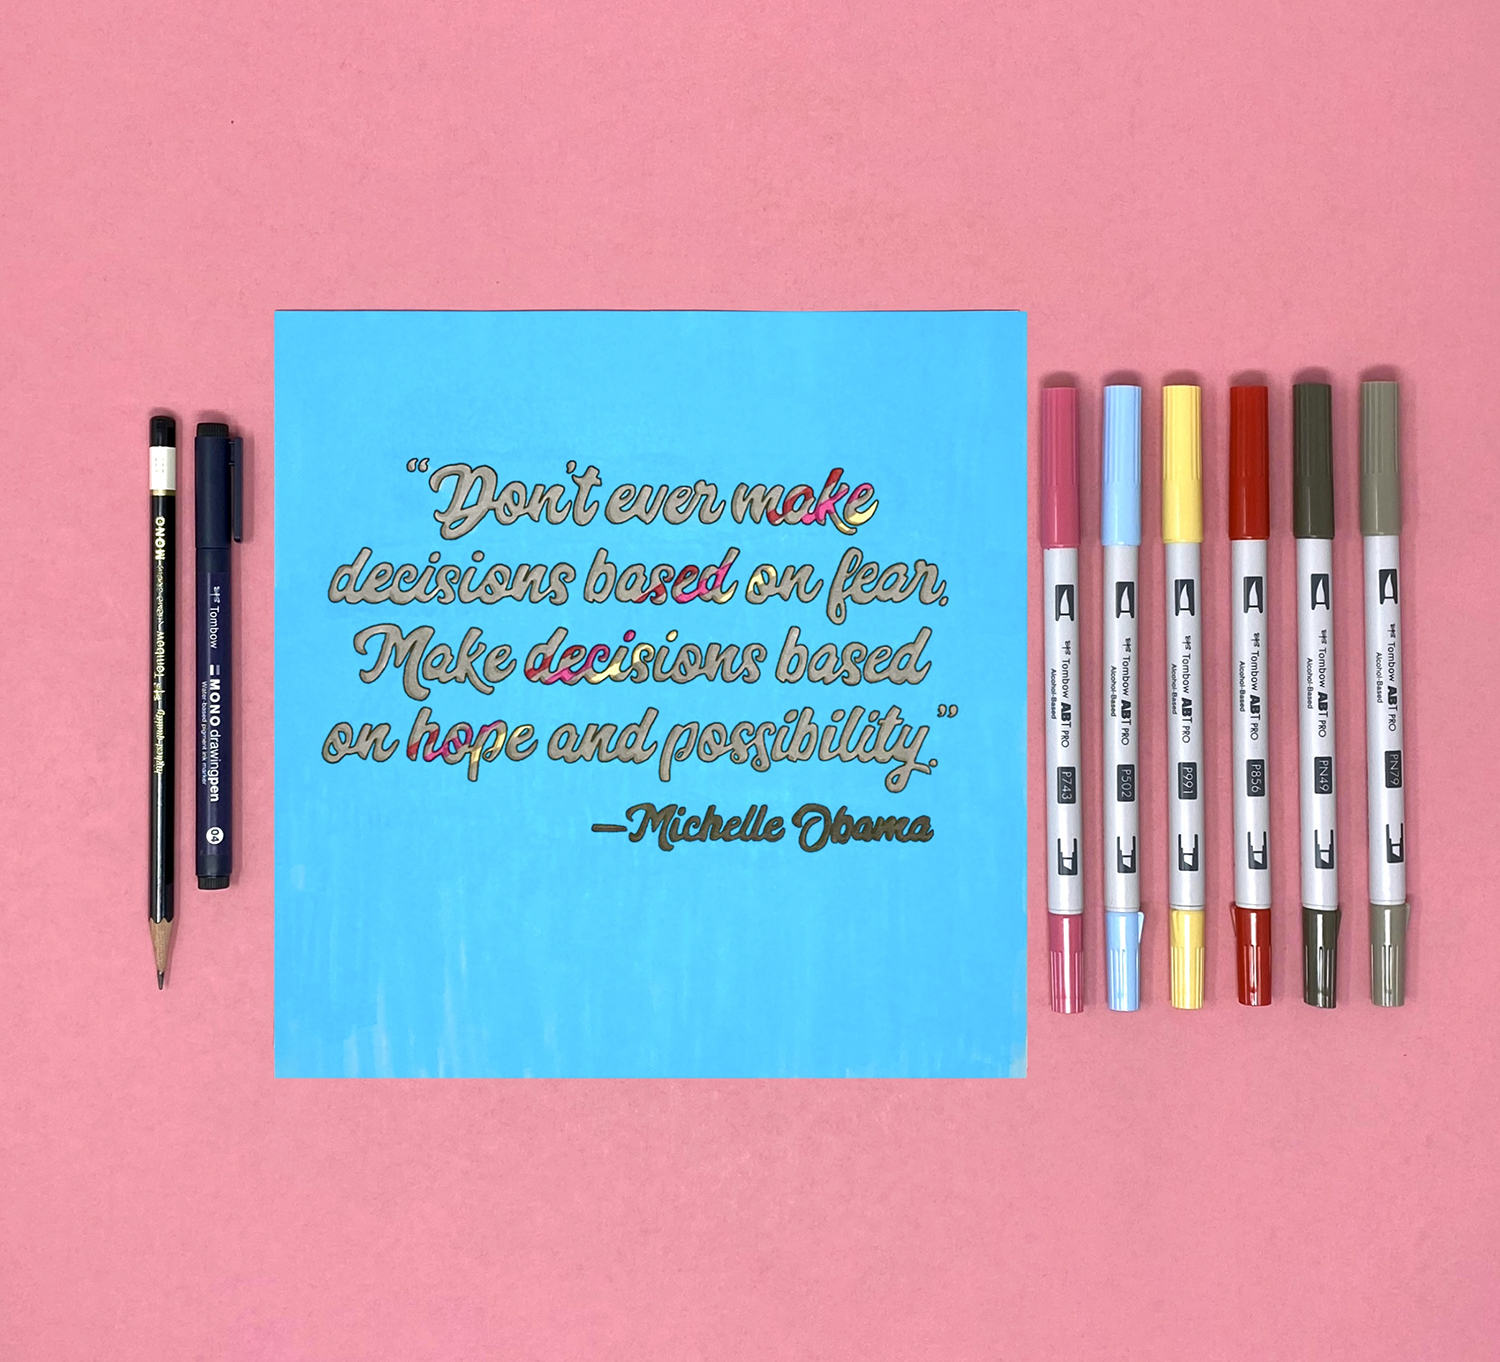 “Don't ever make
decisions based on fear.
Make decisions based
on hope and possibility.”
—Michelle Obama
MONO
TOMBOW
highest quality
Tombow
MONO drawingpen
Water-based pigment ink marker
04
Tombow ABT PRO
Alcohol-Based
P743
Tombow ABT PRO
Alcohol-Based
P502
Tombow ABT PRO
Alcohol-Based
P991
Tombow ABT PRO
Alcohol-Based
P856
Tombow ABT PRO
Alcohol-Based
PN49
Tombow ABT PRO
Alcohol-Based
PN79